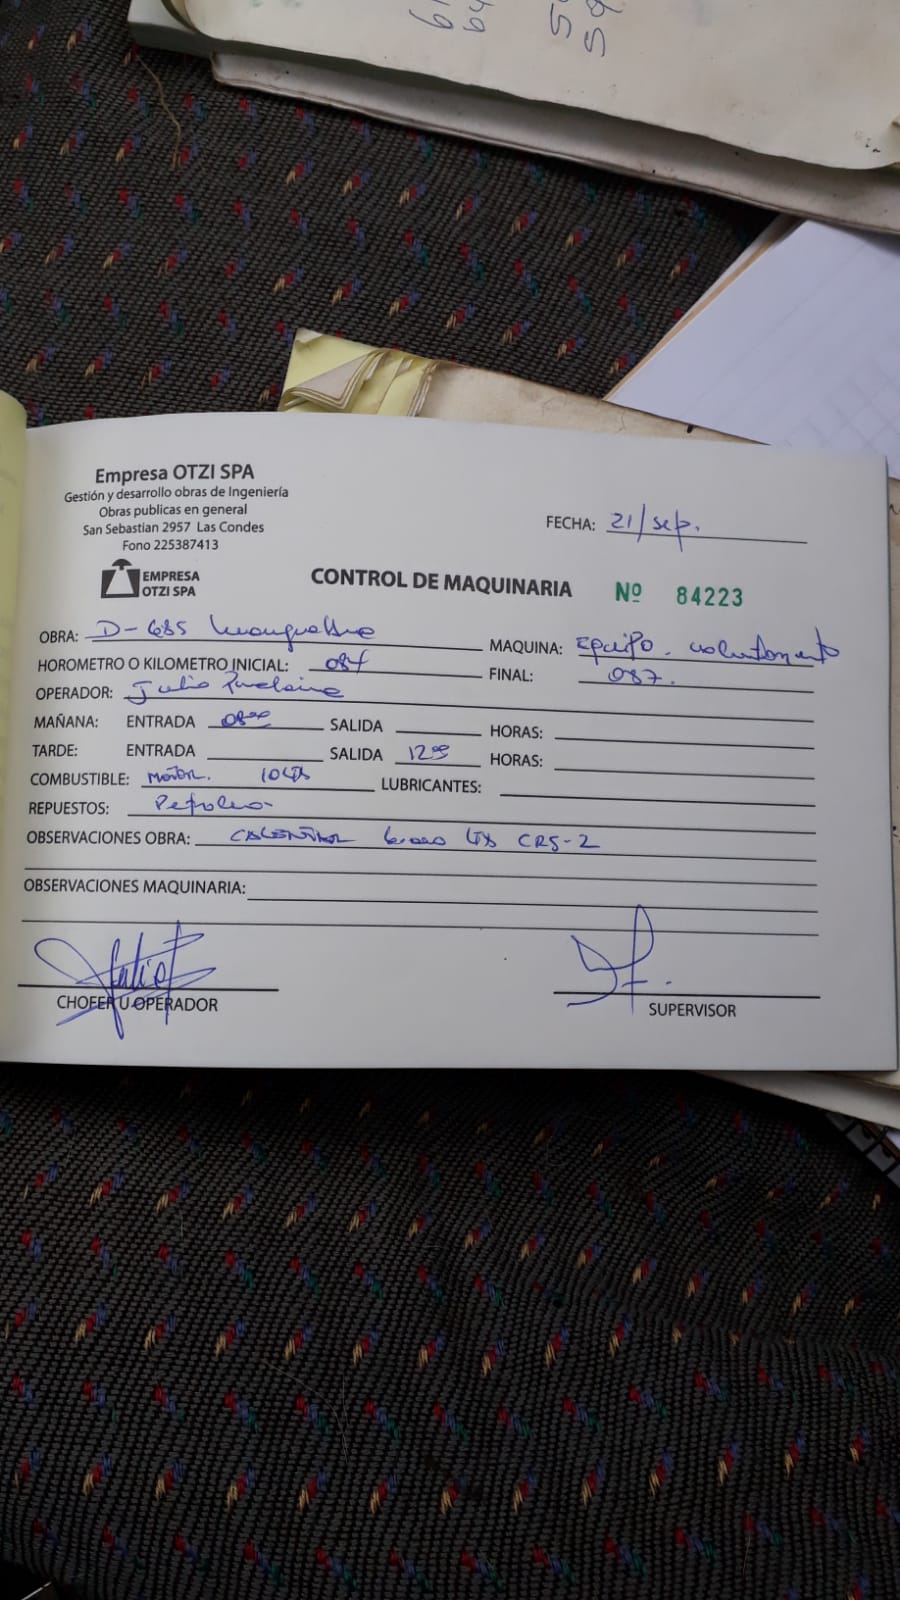 Empresa OTZI SPA
Gestión y desarrollo obras de Ingeniería
Obras publicas en general
San Sebastian 2957 Las Condes
Fono 225387413
EMPRESA
OTZI SPA
FECHA: 21/sep.
CONTROL DE MAQUINARIA Nº 84223
OBRA: D-685
MAQUINA: Equipo.
HOROMETRO O KILOMETRO INICIAL: 084
FINAL: 087.
OPERADOR: Julio
MAÑANA: ENTRADA 08⁰⁰ SALIDA HORAS:
TARDE: ENTRADA SALIDA 12⁰⁰ HORAS:
COMBUSTIBLE: Motor. 10 Lts LUBRICANTES:
REPUESTOS: Petroleo
OBSERVACIONES OBRA: CALENTAR 6.000 Lts CRS-2
OBSERVACIONES MAQUINARIA:
CHOFER U OPERADOR
SUPERVISOR